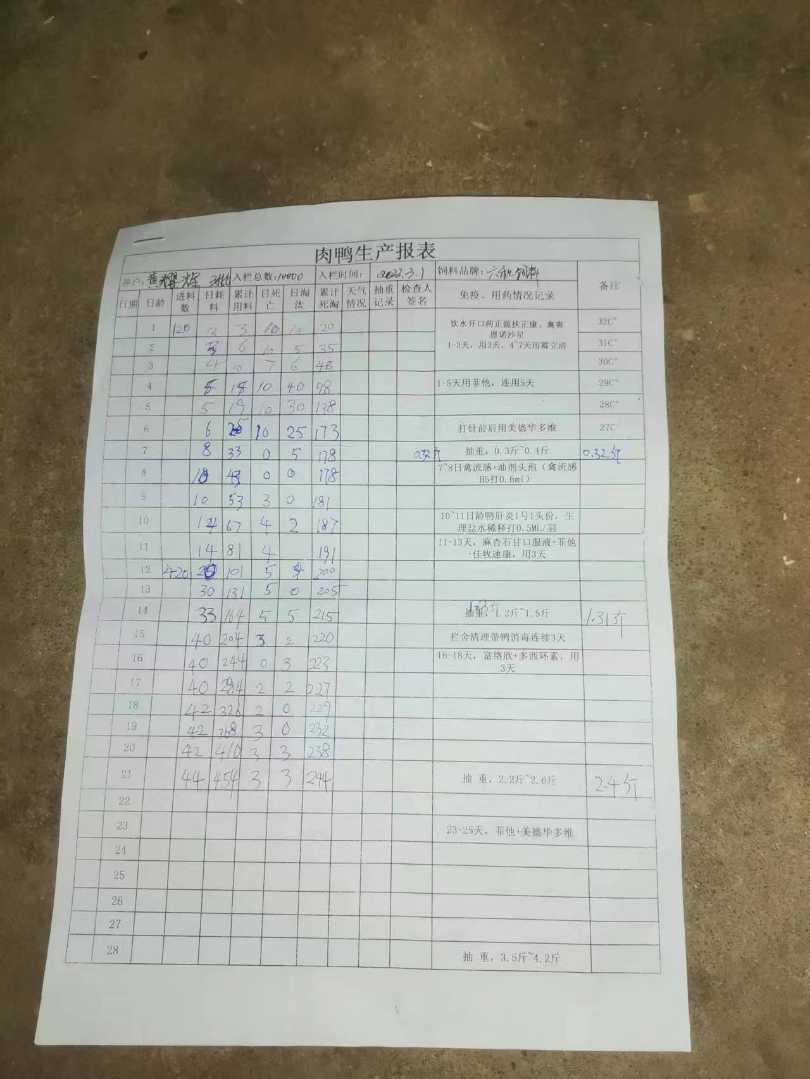 肉鸭生产报表
入栏总数:10000 入栏时间: 2022.3.1 饲料品牌: 饲料 备注
日期 日龄 进料数 日耗料 累计用料 日死亡 日淘汰 累计死淘 天气情况 抽重记录 检查人签名 免疫、用药情况记录
1 120 3 3 10 10 20 32C°
1-3天,用3天,
2 3 6 10 5 35 31C°
3 4 10 7 6 48 30C°
4 5 15 10 40 98 1-5天用菲他,连用5天 29C°
5 5 19 10 30 138 28C°
6 6 25 10 25 173 打针前后用美德华多维 27C°
7 8 33 0 5 178 0.32斤 抽重,0.3斤~0.4斤 0.32斤
8 10 43 0 0 178 7~8日禽流感+油剂头孢(禽流感H5打0.6ml)
9 10 53 3 0 181
10 14 67 4 2 187 10~11日龄鸭肝炎1号1头份,生理盐水稀释打0.5ML/羽
11 14 81 4 191 11-13天,麻杏石甘口服液+菲他+佳牧速康,用3天
12 420 20 101 5 4 200
13 30 131 5 0 205
14 33 164 5 5 215 抽重,1.2斤~1.5斤 1.31斤
15 40 204 3 2 220 栏舍清理带鸭消毒连续3天
16 40 244 0 3 223 16-18天,富络欣+多西环素,用3天
17 40 284 2 2 227
18 42 326 2 0 229
19 42 368 3 0 232
20 42 410 3 3 238
21 44 454 3 3 244 抽 重,2.2斤~2.6斤 2.4斤
22
23 23-25天,菲他+美德华多维
24
25
26
27
28 抽 重,3.5斤~4.2斤